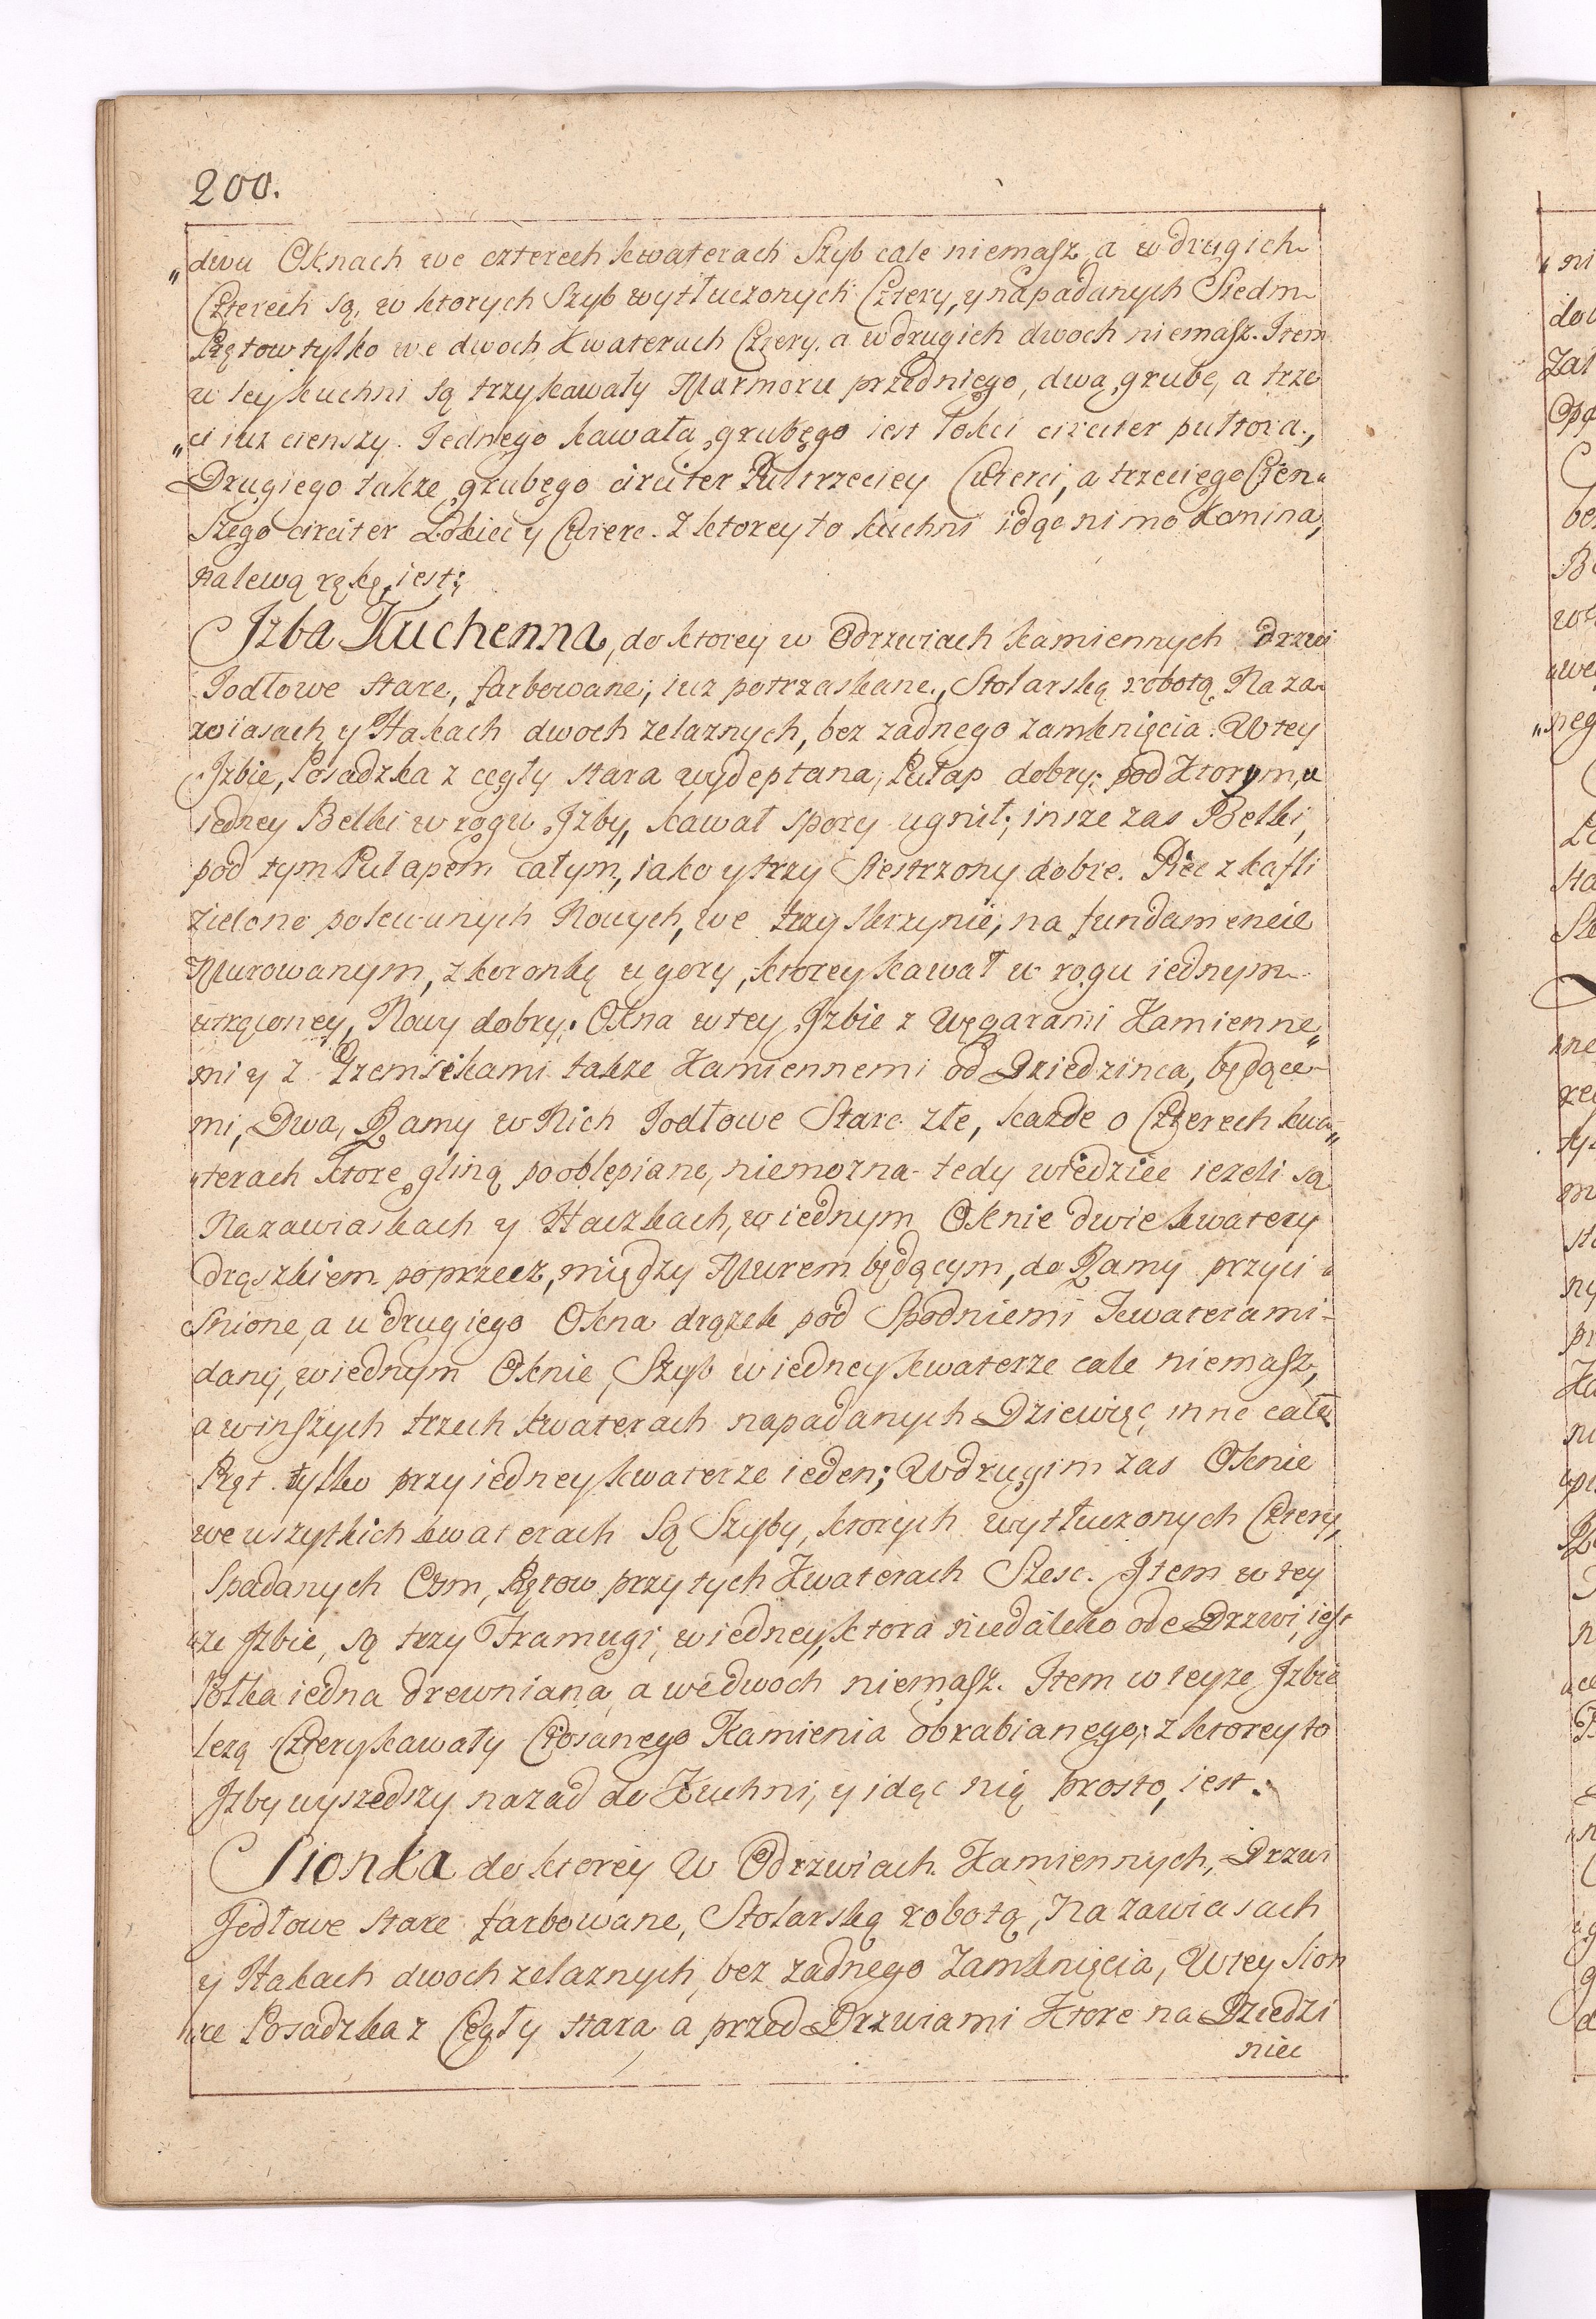 200.
„dwu Oknach we czterech kwaterach Szyb cale niemasz, a w drugich
Czterech są, w ktorych Szyb wytłuczonych Cztery, y napadanych Siedm
Prętow tylko we dwoch Kwaterach Cztery, a w drugich dwoch niemasz. Item
w tey kuchni są trzy kawały Marmoru przedniego, dwa grube, a trze
„ci iuz cienszy. Jednego kawała grubego iest łokci circiter pułtora,
Drugiego takze grubego circiter Pułtrzeciey Cwierci, a trzeciego Cien„
szego circiter Łokiec y Cwierc. Z ktorey to kuchni idąc nimo Komina,
na lewą rękę, iest;
Izba Kuchenna, do ktorey w Odrzwiach kamiennych drzwi
Jodłowe stare, farbowane, iuz potrzaskane, Stolarską robotą, Na za„
wiasach y Hakach dwoch zelaznych, bez zadnego zamknięcia. W tey
Izbie, Posadzka z cegły stara wydeptana, Pułap dobry; pod Ktorym, u
iedney Belki w rogu Izby, kawał spory ugnił; insze zas Belki,
pod tym Pułapem całym, iako y trzy Siestrzony dobre. Piec z kafli
zielono polewanych Nowych, we trzy skrzynie, na fundamencie
Murowanym, z koronką u gory, ktorey kawał w rogu iednym
utrąconey, Nowy dobry. Okna w tey Izbie z Węgarami Kamienne„
mi y z Gzemsikami takze Kamiennemi od Dziedzinca, będące
mi, Dwa, Ramy w Nich Jodłowe Stare złe, kazde o Czterech kwa„
„terach Ktore gliną pooblepiane, niemozna tedy wiedziec iezeli są
Na zawiaskach y Haczkach, w iednym Oknie dwie kwatery
drąszkiem poprzecz, między Murem będącym, do Ramy przyci„
snione, a u drugiego Okna drązek pod Spodniemi Kwaterami
dany, w iednym Oknie, Szyb w iedney kwaterze cale niemasz,
a w inszych trzech kwaterach napadanych Dziewięc, inne całe
Pręt tylko przy iedney kwaterze ieden; W drugim zas Oknie
we wszytkich kwaterach Są Szyby, ktorych wytłuczonych Cztery,
Spadanych Osm, Prętow przy tych Kwaterach Szesc. Item w tey
ze Izbie, są trzy Framugi, w iedney, ktora niedaleko ode Drzwi, iest
Połka iedna drewniana, a we dwoch niemasz. Item w teyze Izbie
lezą Cztery kawały Ciosanego Kamienia obrabianego; z ktorey to
Izby wyszedszy nazad do Kuchni, y idąc nią prosto, iest.
Sionka do ktorey w Odrzwiach Kamiennych, Drzwi
Jodłowe stare farbowane, Stolarską robotą, Na zawiasach
y Hakach dwoch zelaznych, bez zadnego Zamknięcia, W tey Sion
„ce Posadzka z Cegły stara, a przed Drzwiami Ktore na Dziedzi
niec